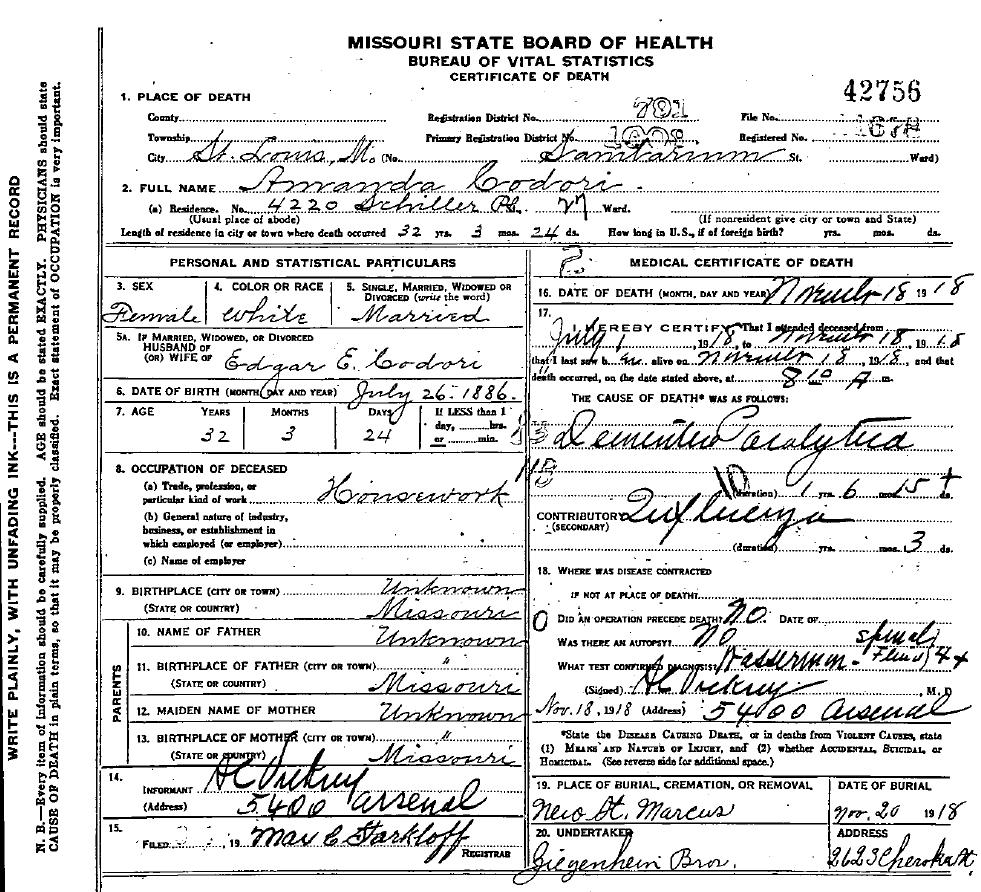 MISSOURI STATE BOARD OF HEALTH
BUREAU OF VITAL STATISTICS
CERTIFICATE OF DEATH
42756
1. PLACE OF DEATH
County Registration District No. 781 File No.
Township Primary Registration District No. 1008 Registered No.
City St. Louis, Mo. (No. Sanitarium St. Ward)
2. FULL NAME Amanda Codori.
(a) Residence. No. 4220 Schiller Pl. 27 Ward.
(Usual place of abode) (If nonresident give city or town and State)
Length of residence in city or town where death occurred 32 yrs. 3 mos. 24 ds. How long in U.S., if of foreign birth? yrs. mos. ds.
PERSONAL AND STATISTICAL PARTICULARS
3. SEX 4. COLOR OR RACE 5. SINGLE, MARRIED, WIDOWED OR
DIVORCED (write the word)
Female White Married
5A. IF MARRIED, WIDOWED, OR DIVORCED
HUSBAND OF
(OR) WIFE OF Edgar E. Codori
6. DATE OF BIRTH (MONTH, DAY AND YEAR) July 26. 1886.
7. AGE YEARS MONTHS DAYS If LESS than 1
day, hrs.
or min.
32 3 24
8. OCCUPATION OF DECEASED
(a) Trade, profession, or
particular kind of work Housework
(b) General nature of industry,
business, or establishment in
which employed (or employer)
(c) Name of employer
9. BIRTHPLACE (CITY OR TOWN) Unknown
(STATE OR COUNTRY) Missouri
PARENTS
10. NAME OF FATHER Unknown
11. BIRTHPLACE OF FATHER (CITY OR TOWN) "
(STATE OR COUNTRY) Missouri
12. MAIDEN NAME OF MOTHER Unknown
13. BIRTHPLACE OF MOTHER (CITY OR TOWN) "
(STATE OR COUNTRY) Missouri
14.
INFORMANT
(Address) 5400 Arsenal
15.
FILED 19 Max C Starkloff
REGISTRAR
MEDICAL CERTIFICATE OF DEATH
16. DATE OF DEATH (MONTH, DAY AND YEAR) 18 1918
17.
I HEREBY CERTIFY, That I attended deceased from
July 1, 1918, to 18, 1918
that I last saw her alive on 18, 1918, and that
death occurred, on the date stated above, at 8 10 A m.
THE CAUSE OF DEATH* WAS AS FOLLOWS:
Dementia Paralytica
(duration) 1 yrs. 6 mos. 15 + ds.
CONTRIBUTORY Influenza
(SECONDARY)
(duration) yrs. mos. 3 ds.
18. WHERE WAS DISEASE CONTRACTED
IF NOT AT PLACE OF DEATH?
DID AN OPERATION PRECEDE DEATH? No. DATE OF
WAS THERE AN AUTOPSY? No
WHAT TEST CONFIRMED DIAGNOSIS? Wasserman - Spinal Fluid 4+
(Signed) , M. D.
Nov. 18, 1918 (Address) 5400 Arsenal
*State the DISEASE CAUSING DEATH, or in deaths from VIOLENT CAUSES, state
(1) MEANS AND NATURE OF INJURY, and (2) whether ACCIDENTAL, SUICIDAL, or
HOMICIDAL. (See reverse side for additional space.)
19. PLACE OF BURIAL, CREMATION, OR REMOVAL DATE OF BURIAL
New St. Marcus Nov. 20 1918
20. UNDERTAKER ADDRESS
Ziegenhein Bros. 2623 Cherokee St.
WRITE PLAINLY, WITH UNFADING INK---THIS IS A PERMANENT RECORD
N. B.—Every item of information should be carefully supplied. AGE should be stated EXACTLY. PHYSICIANS should state
CAUSE OF DEATH in plain terms, so that it may be properly classified. Exact statement of OCCUPATION is very important.